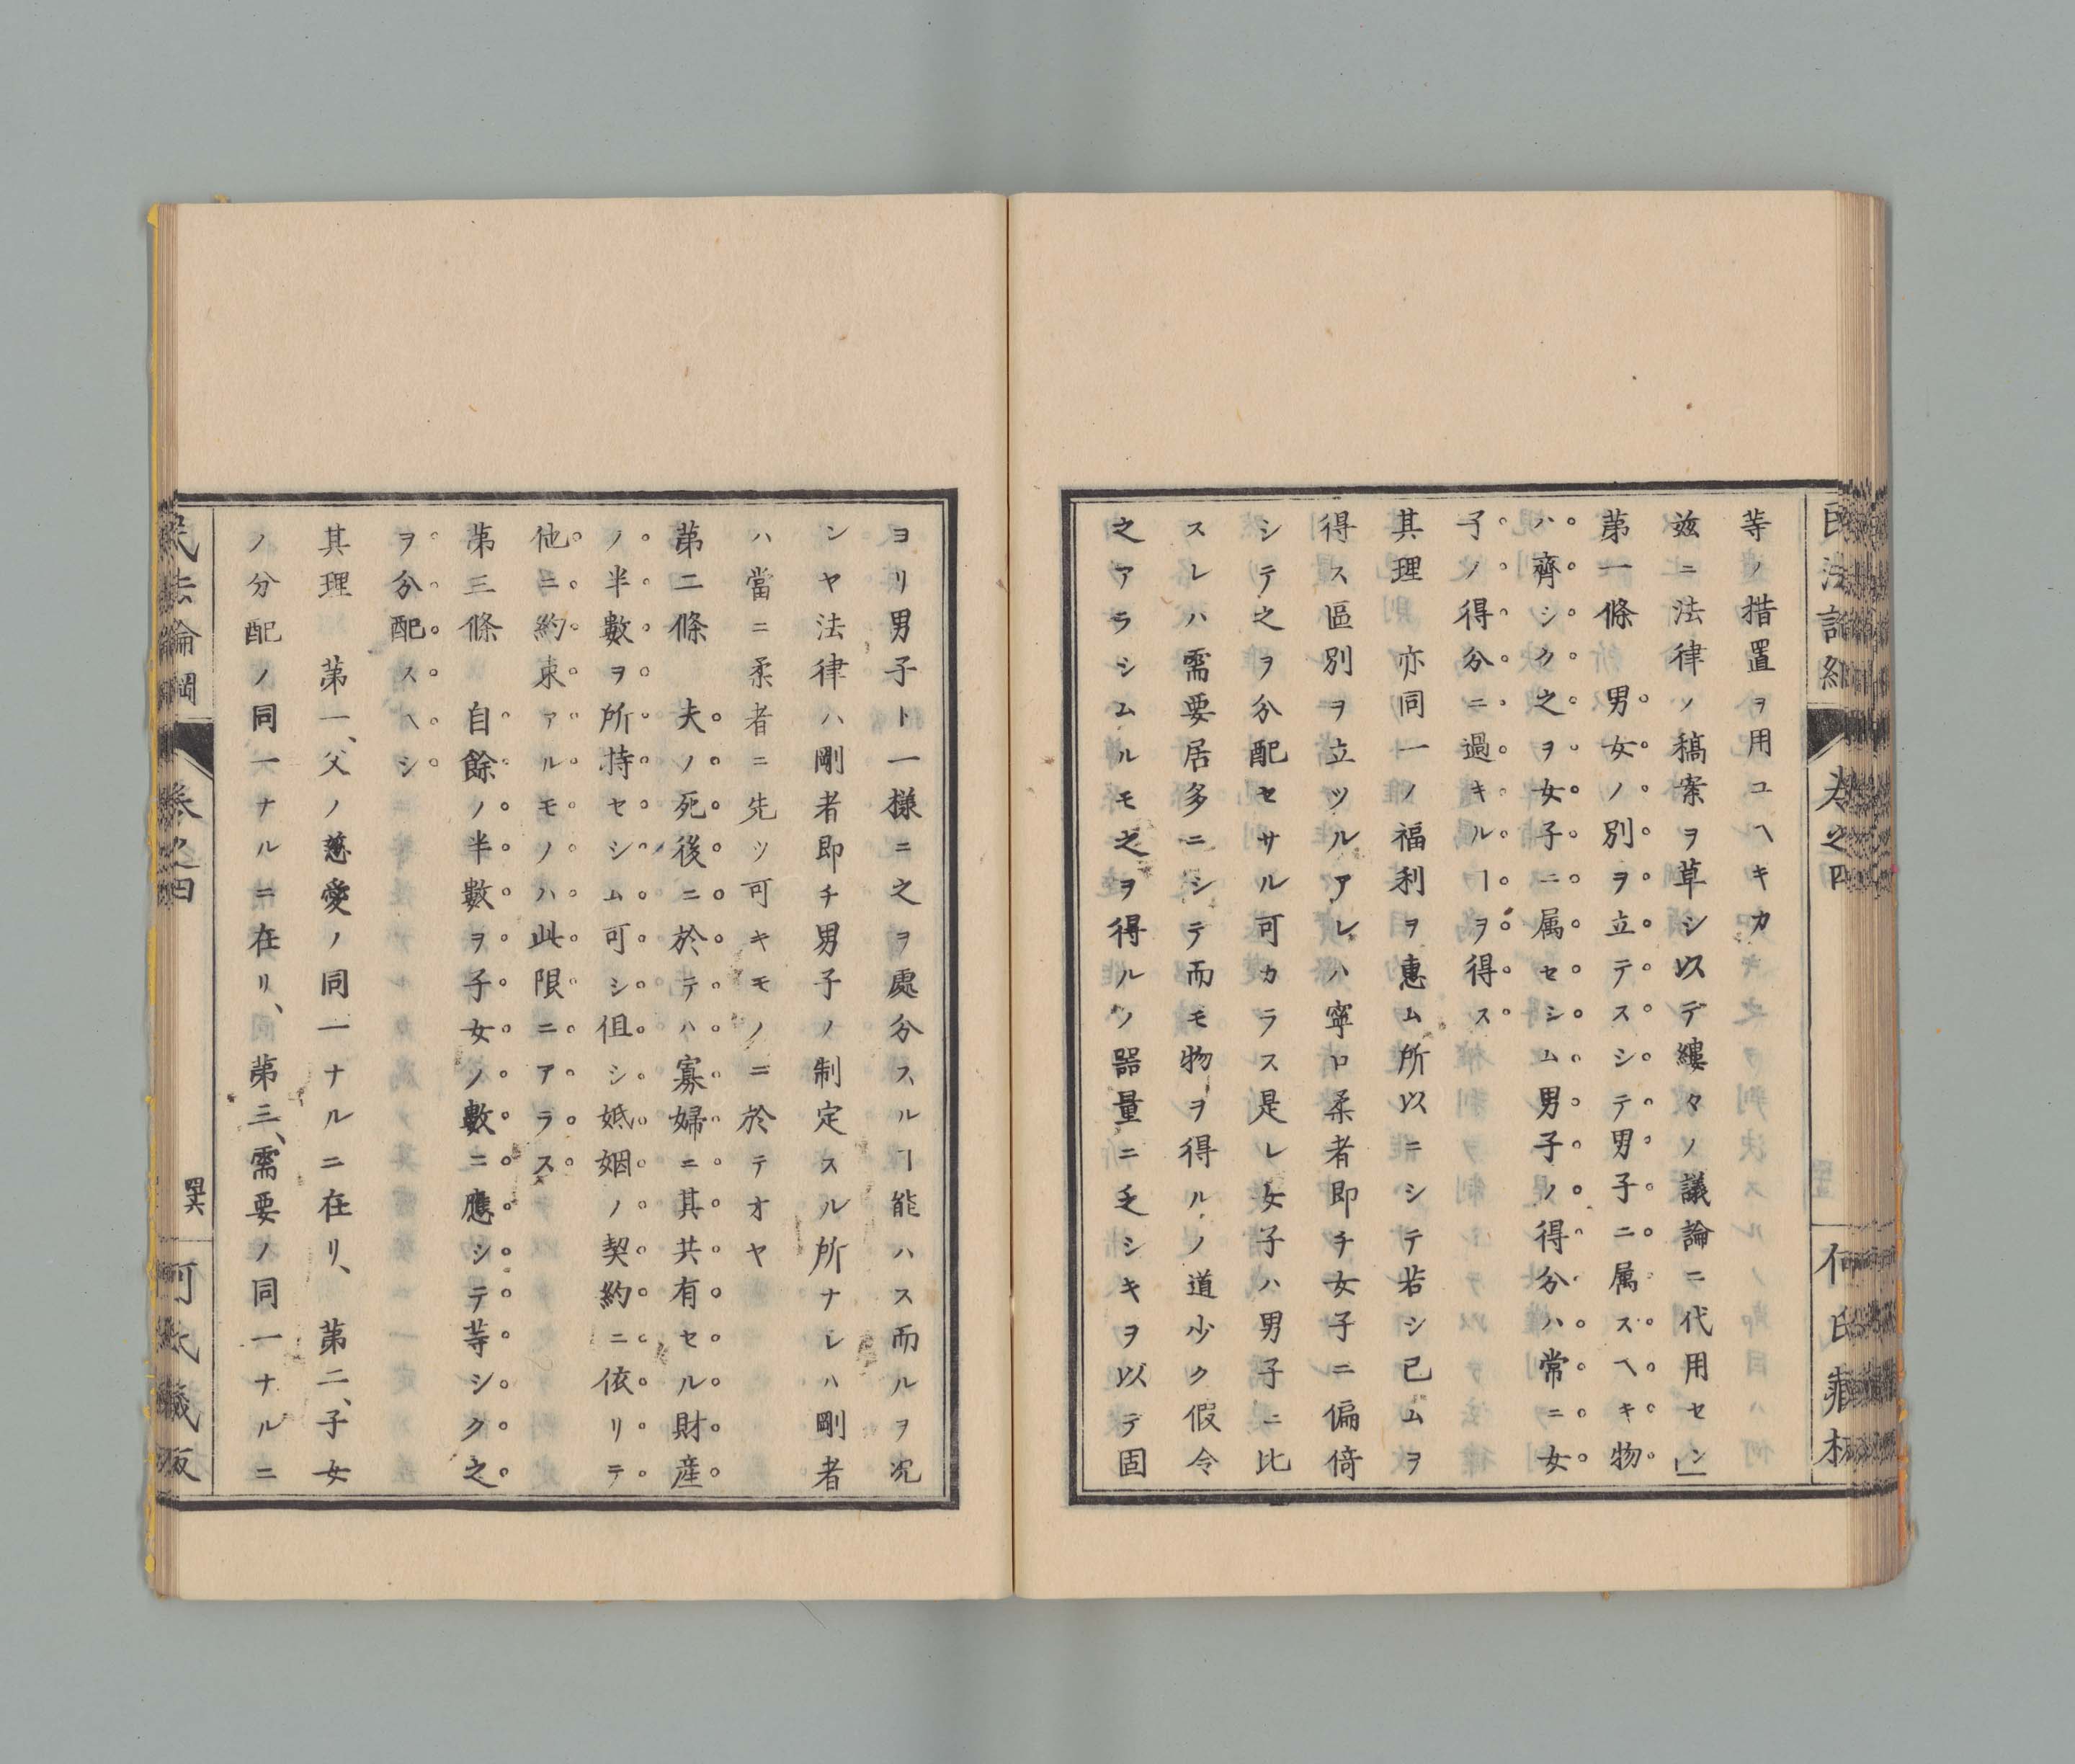 等ノ措置ヲ用ユヘキカ
玆ニ法律ノ稿案ヲ草シ以テ縷々ノ議論ニ代用セン
第一條　男女ノ別ヲ立テスシテ男子ニ属スヘキ物
ハ齊シク之ヲ女子ニ属セシム男子ノ得分ハ常ニ女
子ノ得分ニ過キルヿヲ得ス
其理亦同一ノ福利ヲ惠ム所以ニシテ若シ已ムヲ
得ス區別ヲ立ツルアレハ寧ロ柔者即チ女子ニ偏倚
シテ之ヲ分配セサル可カラス是レ女子ハ男子ニ比
スレハ需要居多ニシテ而モ物ヲ得ルノ道少ク假令
之アラシムルモ之ヲ得ルノ器量ニ乏シキヲ以テ固
ヨリ男子ト一様ニ之ヲ處分スルヿ能ハス而ルヲ况
ンヤ法律ハ剛者即チ男子ノ制定スル所ナレハ剛者
ハ當ニ柔者ニ先ツ可キモノニ於テオヤ
第二條　夫ノ死後ニ於テハ寡婦ニ其共有セル財産
ノ半數ヲ所持セシム可シ伹シ婚姻ノ契約ニ依リテ
他ニ約束アルモノハ此限ニアラス
第三條　自餘ノ半數ヲ子女ノ數ニ應シテ等シク之
ヲ分配スヘシ
其理　第一、父ノ慈愛ノ同一ナルニ在リ、　第二、子女
ノ分配ノ同一ナルニ在リ、　第三、需要ノ同一ナルニ
民法論綱
卷之四
四十六
何氏藏版